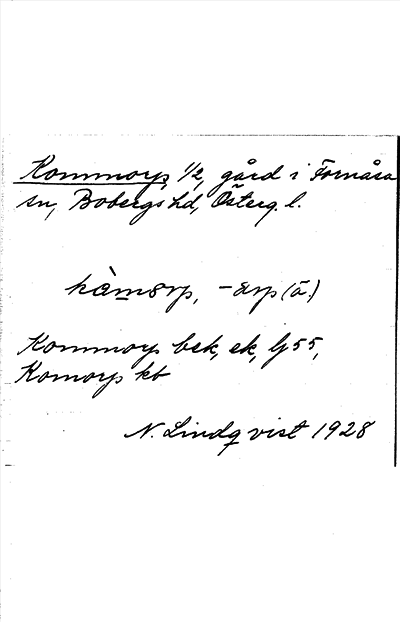 Kommorp, 1/2, gård i Fornåsa
sn, Bobergs hd, Österg. l.
-ærp (ä.)
Kommorp bek, ek, Gj 55,
Komorp kb
N. Lindqvist 1928